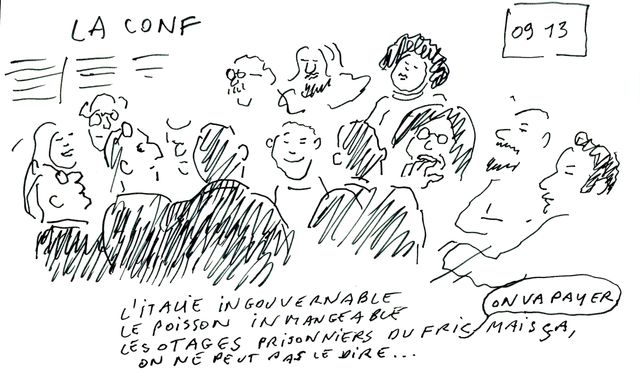 LA CONF
09 13
L'ITALIE INGOUVERNABLE
LE POISSON INMANGEABLE
LES OTAGES PRISONNIERS DU FRIC, MAIS ÇA,
ON NE PEUT PAS LE DIRE...
ON VA PAYER